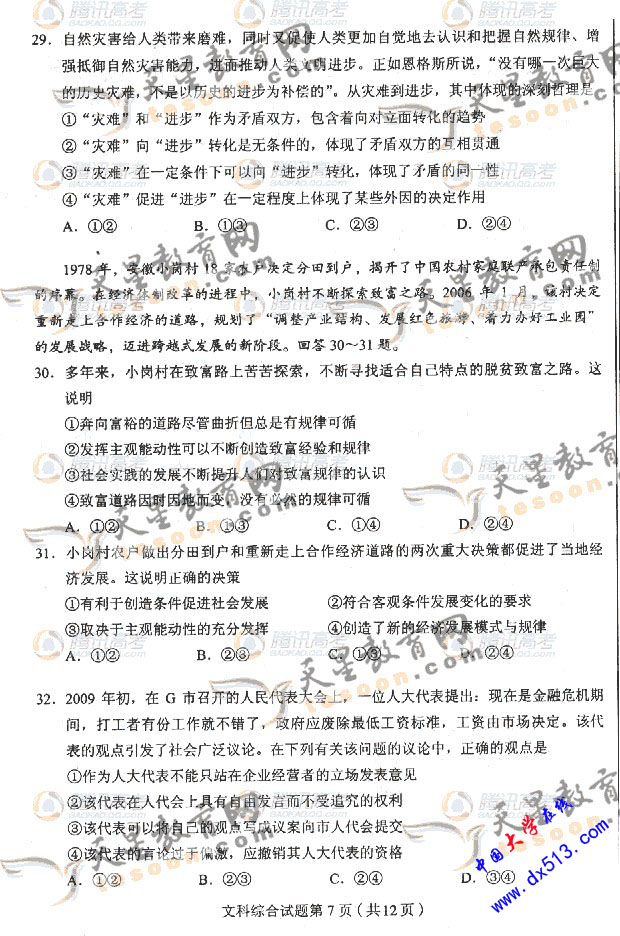 29. 自然灾害给人类带来磨难，同时又促使人类更加自觉地去认识和把握自然规律、增
强抵御自然灾害能力，进而推动人类文明进步。正如恩格斯所说，“没有哪一次巨大
的历史灾难，不是以历史的进步为补偿的”。从灾难到进步，其中体现的深刻哲理是
①“灾难”和“进步”作为矛盾双方，包含着向对立面转化的趋势
②“灾难”向“进步”转化是无条件的，体现了矛盾双方的互相贯通
③“灾难”在一定条件下可以向“进步”转化，体现了矛盾的同一性
④“灾难”促进“进步”在一定程度上体现了某些外因的决定作用
A. ①② B. ①③ C. ②③ D. ②④
1978年，安徽小岗村18家农户决定分田到户，揭开了中国农村家庭联产承包责任制
的序幕。在经济体制改革的进程中，小岗村不断探索致富之路。2006年1月，该村决定
重新走上合作经济的道路，规划了“调整产业结构、发展红色旅游、着力办好工业园”
的发展战略，迈进跨越式发展的新阶段。回答30～31题。
30. 多年来，小岗村在致富路上苦苦探索，不断寻找适合自己特点的脱贫致富之路。这
说明
①奔向富裕的道路尽管曲折但总是有规律可循
②发挥主观能动性可以不断创造致富经验和规律
③社会实践的发展不断提升人们对致富规律的认识
④致富道路因时因地而变，没有必然的规律可循
A. ①② B. ①③ C. ①④ D. ②④
31. 小岗村农户做出分田到户和重新走上合作经济道路的两次重大决策都促进了当地经
济发展。这说明正确的决策
①有利于创造条件促进社会发展 ②符合客观条件发展变化的要求
③取决于主观能动性的充分发挥 ④创造了新的经济发展模式与规律
A. ①② B. ①③ C. ②④ D. ③④
32. 2009年初，在G市召开的人民代表大会上，一位人大代表提出：现在是金融危机期
间，打工者有份工作就不错了，政府应废除最低工资标准，工资由市场决定。该代
表的观点引发了社会广泛议论。在下列有关该问题的议论中，正确的观点是
①作为人大代表不能只站在企业经营者的立场发表意见
②该代表在人代会上具有自由发言而不受追究的权利
③该代表可以将自己的观点写成议案向市人代会提交
④该代表的言论过于偏激，应撤销其人大代表的资格
A. ①② B. ①③ C. ②④ D. ③④
文科综合试题第7页（共12页）
中国大学在线
www.dx513.com
腾讯高考
BAOKAO.QQ.COM
天星教育网
tesoon.com